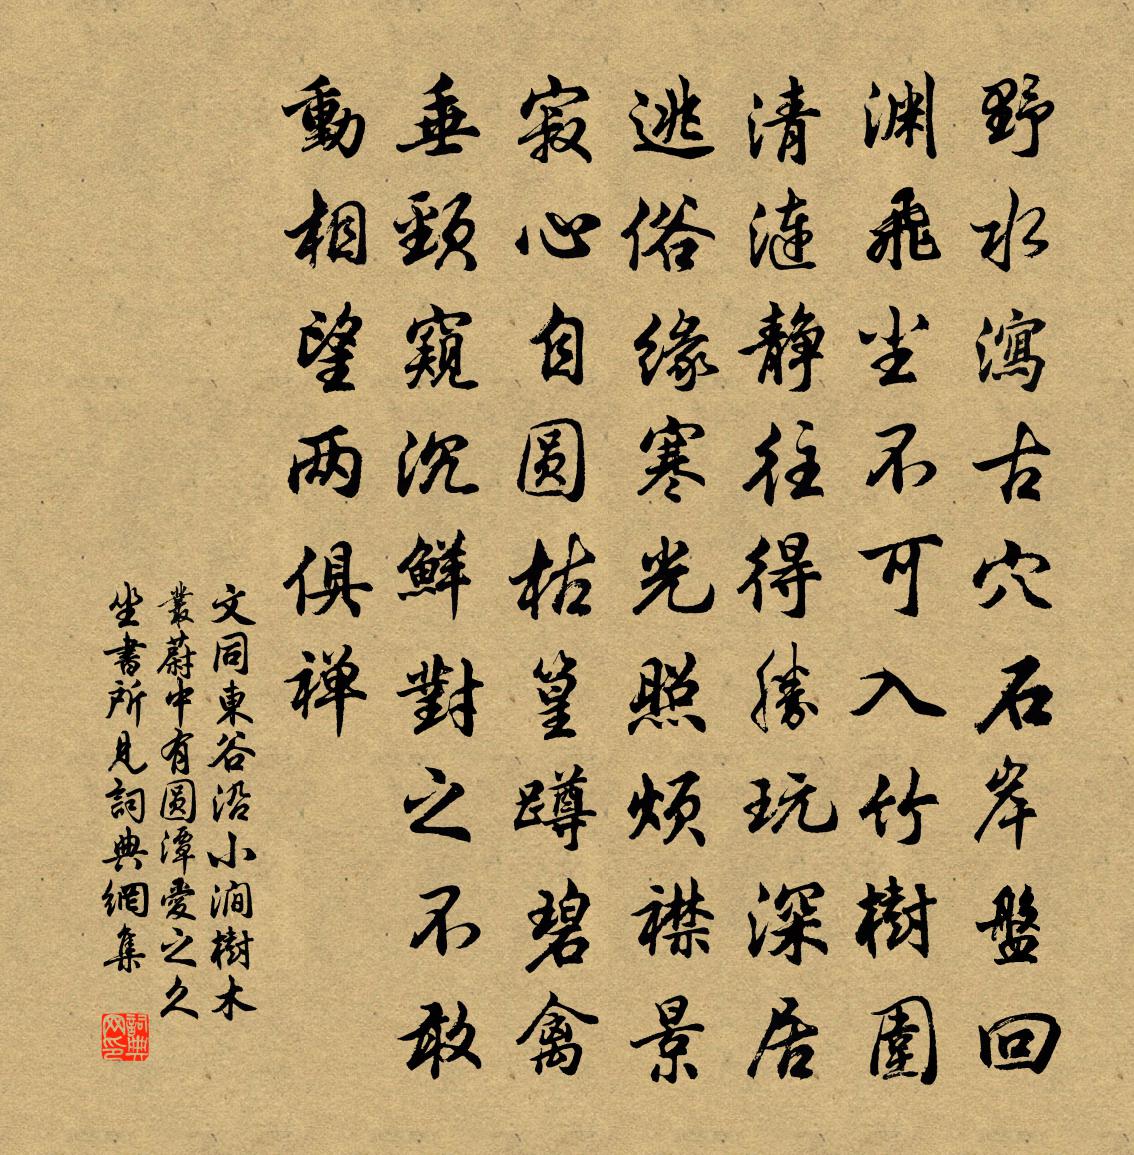 野水瀉古穴石岸盤回
渊飛坐不可入竹樹圍
清漣静往得勝玩深居
逃俗緣寒光照煩襟景
寂心自圆枯篁蹲碧禽
垂頸窺沉鮮對之不敢
動相望两俱禅
文同東谷沿小澗樹木
叢蔚中有圆潭愛之久
坐書所見詞典網集
詞典网印